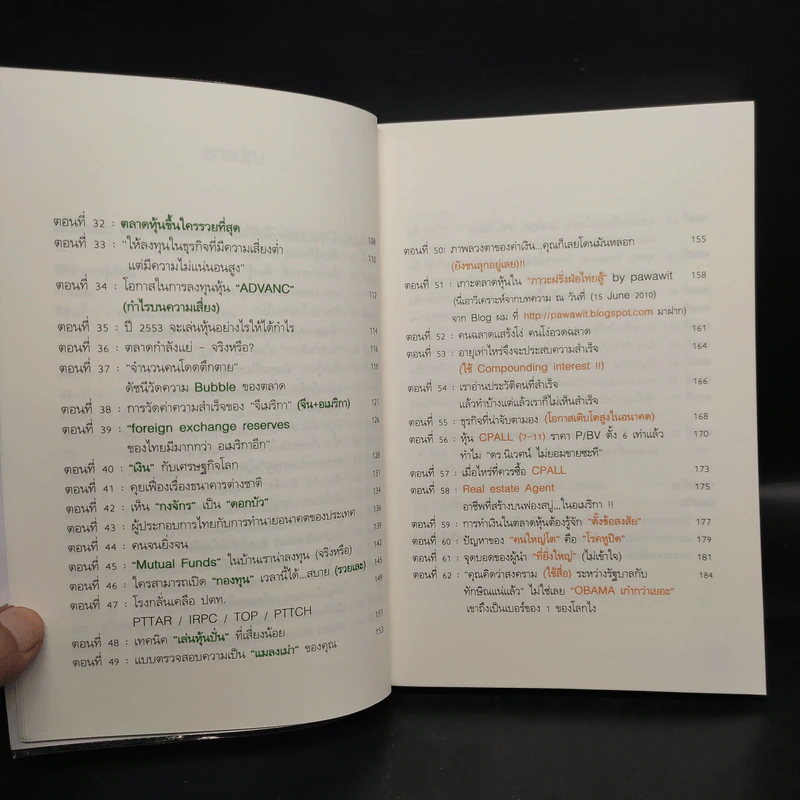 ตอนที่ 32 : ตลาดหุ้นขึ้นใครรวยที่สุด 108
ตอนที่ 33 : "ให้ลงทุนในธุรกิจที่มีความเสี่ยงต่ำ 110
แต่มีความไม่แน่นอนสูง"
ตอนที่ 34 : โอกาสในการลงทุนหุ้น "ADVANC" 112
(กำไรบนความเสี่ยง)
ตอนที่ 35 : ปี 2553 จะเล่นหุ้นอย่างไรให้ได้กำไร 114
ตอนที่ 36 : ตลาดกำลังแย่ - จริงหรือ? 116
ตอนที่ 37 : "จำนวนคนโดดตึกตาย" 119
ดัชนีวัดความ Bubble ของตลาด
ตอนที่ 38 : การวัดค่าความสำเร็จของ "จีเมริกา" (จีน+อเมริกา) 121
ตอนที่ 39 : "foreign exchange reserves 126
ของไทยมีมากกว่า อเมริกาอีก"
ตอนที่ 40 : "เงิน" กับเศรษฐกิจโลก 128
ตอนที่ 41 : คุยเฟื่องเรื่องธนาคารต่างชาติ 131
ตอนที่ 42 : เห็น "กงจักร" เป็น "ดอกบัว" 134
ตอนที่ 43 : ผู้ประกอบการไทยกับการทำนายอนาคตของประเทศ 136
ตอนที่ 44 : คนจนยิ่งจน
ตอนที่ 45 : "Mutual Funds" ในบ้านเราน่าลงทุน (จริงหรือ) 142
ตอนที่ 46 : ใครสามารถเปิด "กองทุน" เวลานี้ได้...สบาย (รวยเละ) 145
ตอนที่ 47 : โรงกลั่นเครือ ปตท. 149
PTTAR / IRPC / TOP / PTTCH
ตอนที่ 48 : เทคนิค "เล่นหุ้นปั่น" ที่เสี่ยงน้อย 151
ตอนที่ 49 : แบบตรวจสอบความเป็น "แมลงเม่า" ของคุณ 153
ตอนที่ 50: ภาพลวงตาของค่าเงิน...คุณก็เลยโดนมันหลอก 155
(ยังขนลุกอยู่เลย)!!
ตอนที่ 51 : เกาะตลาดหุ้นใน "ภาวะฝรั่งฝ่อไทยสู้" by pawawit 158
(นี่เอาวิเคราะห์จากบทความ ณ วันที่ (15 June 2010)
จาก Blog ผม ที่ http://pawawit.blogspot.com มาฝาก)
ตอนที่ 52 : คนฉลาดแสร้งโง่ คนโง่อวดฉลาด 161
ตอนที่ 53 : อายุเท่าไหร่จึงจะประสบความสำเร็จ 164
(ใช้ Compounding interest !!)
ตอนที่ 54 : เราอ่านประวัติคนที่สำเร็จ 166
แล้วทำบ้างแต่แล้วเราก็ไม่เห็นสำเร็จ
ตอนที่ 55 : ธุรกิจที่น่าจับตามอง (โอกาสเติบโตสูงในอนาคต) 168
ตอนที่ 56 : หุ้น CPALL (7-11) ราคา P/BV ตั้ง 6 เท่าแล้ว 170
ทำไม "ดร.นิเวศน์ ไม่ยอมขายซะที"
ตอนที่ 57 : เมื่อไหร่ที่ควรซื้อ CPALL 173
ตอนที่ 58 : Real estate Agent 175
อาชีพที่สร้างบนฟองสบู่...ในอเมริกา !!
ตอนที่ 59 : การทำเงินในตลาดหุ้นต้องรู้จัก "ตั้งข้อสงสัย" 177
ตอนที่ 60 : ปัญหาของ "คนใหญ่โต" คือ "โรคหูปิด" 179
ตอนที่ 61 : จุดบอดของผู้นำ "ที่ยิ่งใหญ่" (ไม่เข้าใจ) 181
ตอนที่ 62 : "คุณคิดว่าสงคราม (ใช้สื่อ) ระหว่างรัฐบาลกับ 184
ทักษิณแน่แล้ว" ไม่ใช่เลย "OBAMA เก๋ากว่าเยอะ"
เขาถึงเป็นเบอร์ของ 1 ของโลกไง